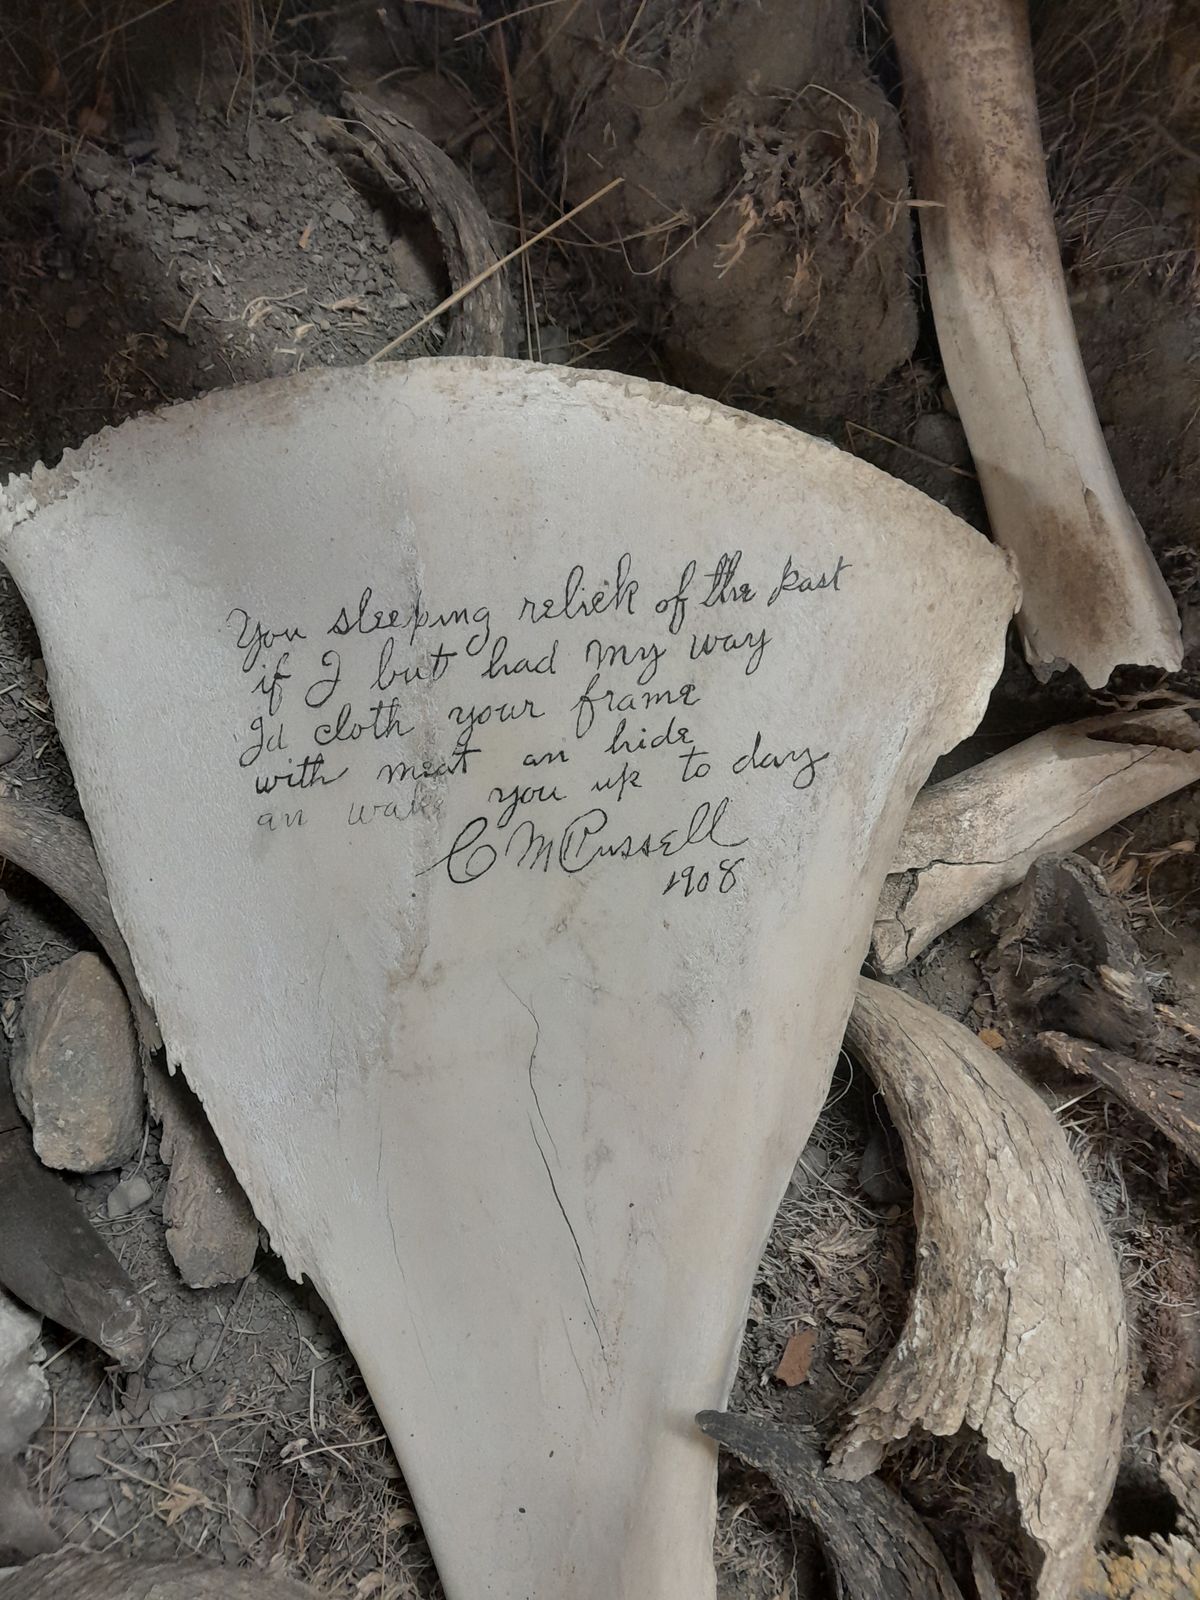 You sleeping relick of the past
if I but had my way
Id cloth your frame
with meat an hide
an wake you up to day
C M Russell
1908